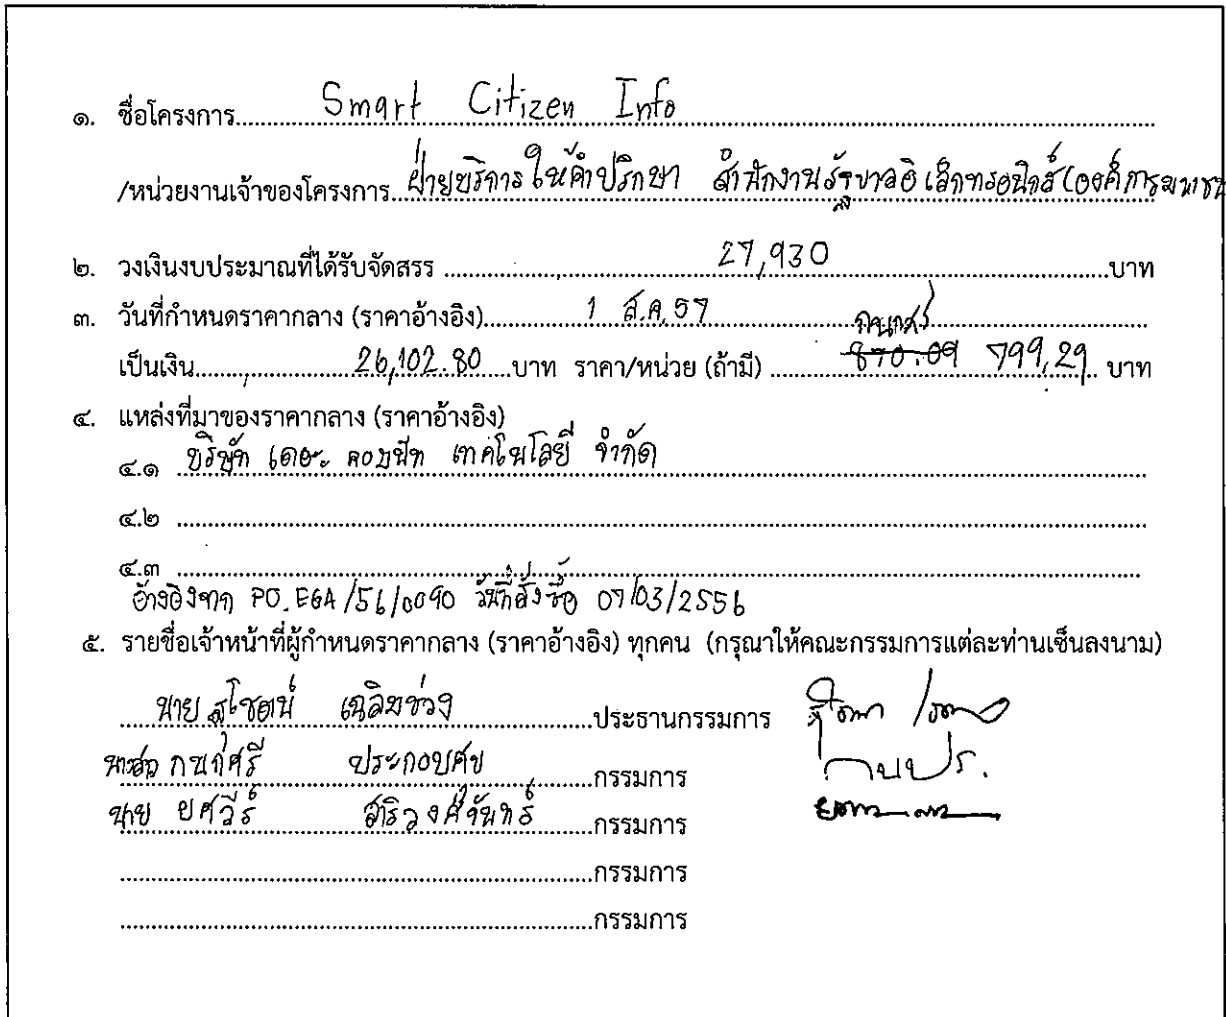 ๑. ชื่อโครงการ Smart Citizen Info
/หน่วยงานเจ้าของโครงการ ฝ่ายบริการให้คำปรึกษา สำนักงานรัฐบาลอิเล็กทรอนิกส์ (องค์การมหาชน
๒. วงเงินงบประมาณที่ได้รับจัดสรร 27,930 บาท
๓. วันที่กำหนดราคากลาง (ราคาอ้างอิง) 1 ส.ค. 57 กนกศรี
เป็นเงิน 26,102.80 บาท ราคา/หน่วย (ถ้ามี) 870.09 799.29 บาท
๔. แหล่งที่มาของราคากลาง (ราคาอ้างอิง)
๔.๑ บริษัท เดอะ คอมมีท เทคโนโลยี จำกัด
๔.๒
๔.๓
อ้างอิงจาก PO.EGA/56/0090 วันที่สั่งซื้อ 07/03/2556
๕. รายชื่อเจ้าหน้าที่ผู้กำหนดราคากลาง (ราคาอ้างอิง) ทุกคน (กรุณาให้คณะกรรมการแต่ละท่านเซ็นลงนาม)
นาย สุโชตน์ เฉลิมช่วง ประธานกรรมการ
นางสาว กนกศรี ประกอบศุข กรรมการ
นาย ยศวีร์ สาริวงศ์จันทร์ กรรมการ
กรรมการ
กรรมการ